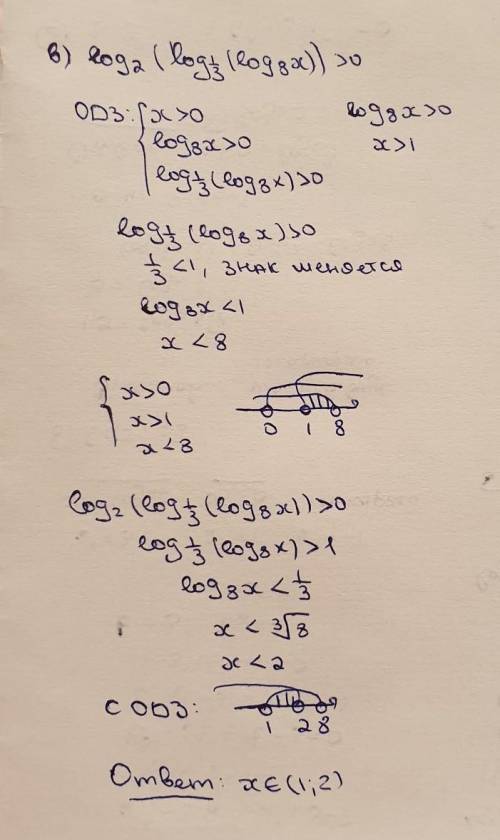 в) log₂(log⅓(log₈x))>0
ОДЗ: { x>0 log₈x>0
log₈x>0 x>1
log⅓(log₈x)>0
log⅓(log₈x)>0
⅓<1, знак меняется
log₈x<1
x<8
{ x>0
x>1
x<8
0 1 8
log₂(log⅓(log₈x))>0
log⅓(log₈x)>1
log₈x<⅓
x<∛8
x<2
С ОДЗ:
1 2 8
Ответ: x∈(1;2)